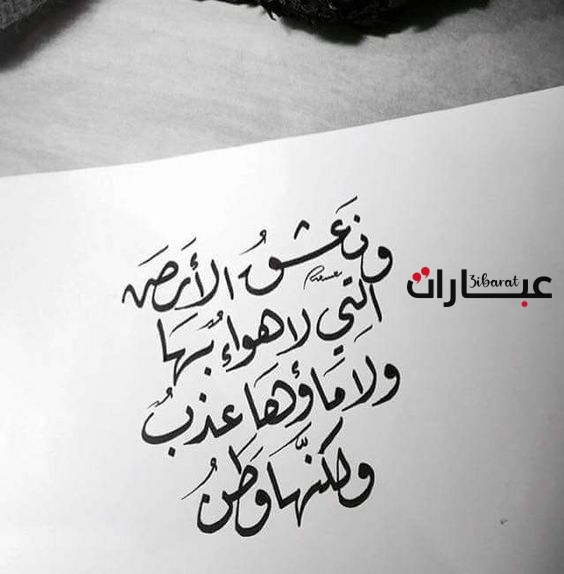 ونَعشقُ الأَرضَ
التِي لا هواءُ بهَا
ولا مَاؤهَا عذبُ
ولكنّهَا وَطنُ
عبارات
3ibarat